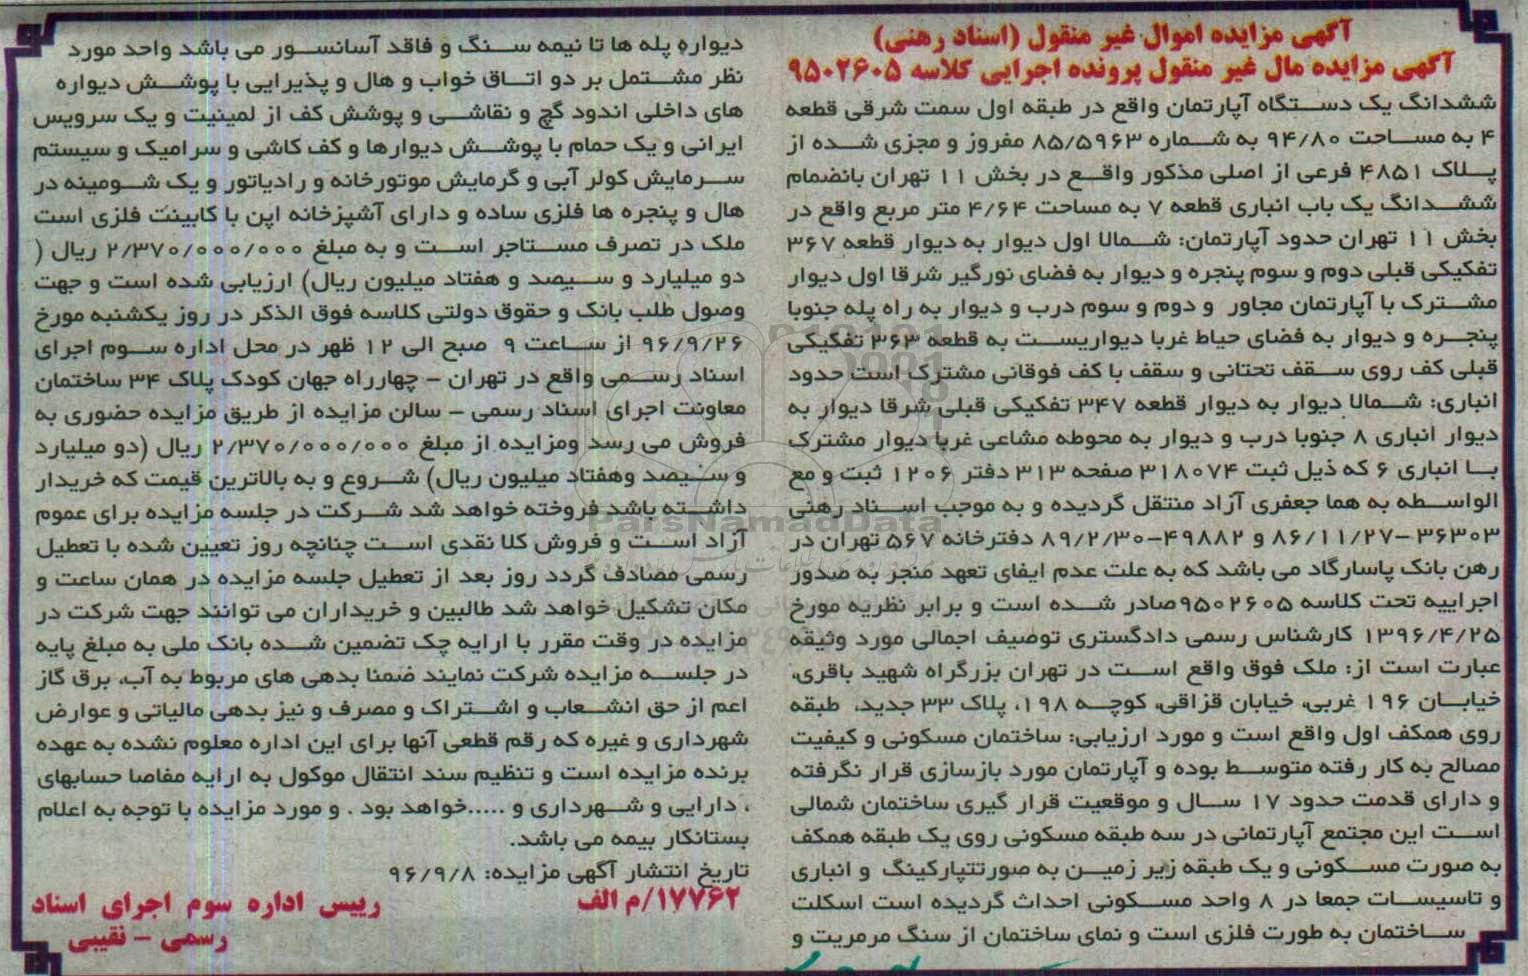 آگهی مزایده اموال غیر منقول (اسناد رهنی)
آگهی مزایده مال غیر منقول پرونده اجرایی کلاسه ۹۵۰۲۶۰۵
ششدانگ یک دستگاه آپارتمان واقع در طبقه اول سمت شرقی قطعه
۴ به مساحت ۹۴/۸۰ به شماره ۸۵/۵۹۶۳ مفروز و مجزی شده از
پلاک ۴۸۵۱ فرعی از اصلی مذکور واقع در بخش ۱۱ تهران بانضمام
ششدانگ یک باب انباری قطعه ۷ به مساحت ۴/۶۴ متر مربع واقع در
بخش ۱۱ تهران حدود آپارتمان: شمالا اول دیوار به دیوار قطعه ۳۶۷
تفکیکی قبلی دوم و سوم پنجره و دیوار به فضای نورگیر شرقا اول دیوار
مشترک با آپارتمان مجاور و دوم و سوم درب و دیوار به راه پله جنوبا
پنجره و دیوار به فضای حیاط غربا دیواریست به قطعه ۳۶۳ تفکیکی
قبلی کف روی سقف تحتانی و سقف با کف فوقانی مشترک است حدود
انباری: شمالا دیوار به دیوار قطعه ۳۴۷ تفکیکی قبلی شرقا دیوار به
دیوار انباری ۸ جنوبا درب و دیوار به محوطه مشاعی غربا دیوار مشترک
با انباری ۶ که ذیل ثبت ۳۱۸۰۷۴ صفحه ۳۱۳ دفتر ۱۲۰۶ ثبت و مع
الواسطه به هما جعفری آزاد منتقل گردیده و به موجب اسناد رهنی
۳۶۳۰۳-۸۶/۱۱/۲۷ و ۴۹۸۸۲-۸۹/۲/۳۰ دفترخانه ۵۶۷ تهران در
رهن بانک پاسارگاد می باشد که به علت عدم ایفای تعهد منجر به صدور
اجراییه تحت کلاسه ۹۵۰۲۶۰۵صادر شده است و برابر نظریه مورخ
۱۳۹۶/۴/۲۵ کارشناس رسمی دادگستری توصیف اجمالی مورد وثیقه
عبارت است از: ملک فوق واقع است در تهران بزرگراه شهید باقری،
خیابان ۱۹۶ غربی، خیابان قزاقی، کوچه ۱۹۸، پلاک ۳۳ جدید، طبقه
روی همکف اول واقع است و مورد ارزیابی: ساختمان مسکونی و کیفیت
مصالح به کار رفته متوسط بوده و آپارتمان مورد بازسازی قرار نگرفته
و دارای قدمت حدود ۱۷ سال و موقعیت قرار گیری ساختمان شمالی
است این مجتمع آپارتمانی در سه طبقه مسکونی روی یک طبقه همکف
به صورت مسکونی و یک طبقه زیر زمین به صورتتپارکینگ و انباری
و تاسیسات جمعا در ۸ واحد مسکونی احداث گردیده است اسکلت
ساختمان به طورت فلزی است و نمای ساختمان از سنگ مرمریت و
دیواره پله ها تا نیمه سنگ و فاقد آسانسور می باشد واحد مورد
نظر مشتمل بر دو اتاق خواب و هال و پذیرایی با پوشش دیواره
های داخلی اندود گچ و نقاشی و پوشش کف از لمینیت و یک سرویس
ایرانی و یک حمام با پوشش دیوارها و کف کاشی و سرامیک و سیستم
سرمایش کولر آبی و گرمایش موتورخانه و رادیاتور و یک شومینه در
هال و پنجره ها فلزی ساده و دارای آشپزخانه اپن با کابینت فلزی است
ملک در تصرف مستاجر است و به مبلغ ۲/۳۷۰/۰۰۰/۰۰۰ ریال (
دو میلیارد و سیصد و هفتاد میلیون ریال) ارزیابی شده است و جهت
وصول طلب بانک و حقوق دولتی کلاسه فوق الذکر در روز یکشنبه مورخ
۹۶/۹/۲۶ از ساعت ۹ صبح الی ۱۲ ظهر در محل اداره سوم اجرای
اسناد رسمی واقع در تهران - چهارراه جهان کودک پلاک ۳۴ ساختمان
معاونت اجرای اسناد رسمی - سالن مزایده از طریق مزایده حضوری به
فروش می رسد ومزایده از مبلغ ۲/۳۷۰/۰۰۰/۰۰۰ ریال (دو میلیارد
و سیصد وهفتاد میلیون ریال) شروع و به بالاترین قیمت که خریدار
داشته باشد فروخته خواهد شد شرکت در جلسه مزایده برای عموم
آزاد است و فروش کلا نقدی است چنانچه روز تعیین شده با تعطیل
رسمی مصادف گردد روز بعد از تعطیل جلسه مزایده در همان ساعت و
مکان تشکیل خواهد شد طالبین و خریداران می توانند جهت شرکت در
مزایده در وقت مقرر با ارایه چک تضمین شده بانک ملی به مبلغ پایه
در جلسه مزایده شرکت نمایند ضمنا بدهی های مربوط به آب، برق گاز
اعم از حق انشعاب و اشتراک و مصرف و نیز بدهی مالیاتی و عوارض
شهرداری و غیره که رقم قطعی آنها برای این اداره معلوم نشده به عهده
برنده مزایده است و تنظیم سند انتقال موکول به ارایه مفاصا حسابهای
، دارایی و شهرداری و .....خواهد بود . و مورد مزایده با توجه به اعلام
بستانکار بیمه می باشد.
تاریخ انتشار آگهی مزایده: ۹۶/۹/۸
۱۷۷۶۲/م الف
رییس اداره سوم اجرای اسناد
رسمی - نقیبی
ParsNamadData